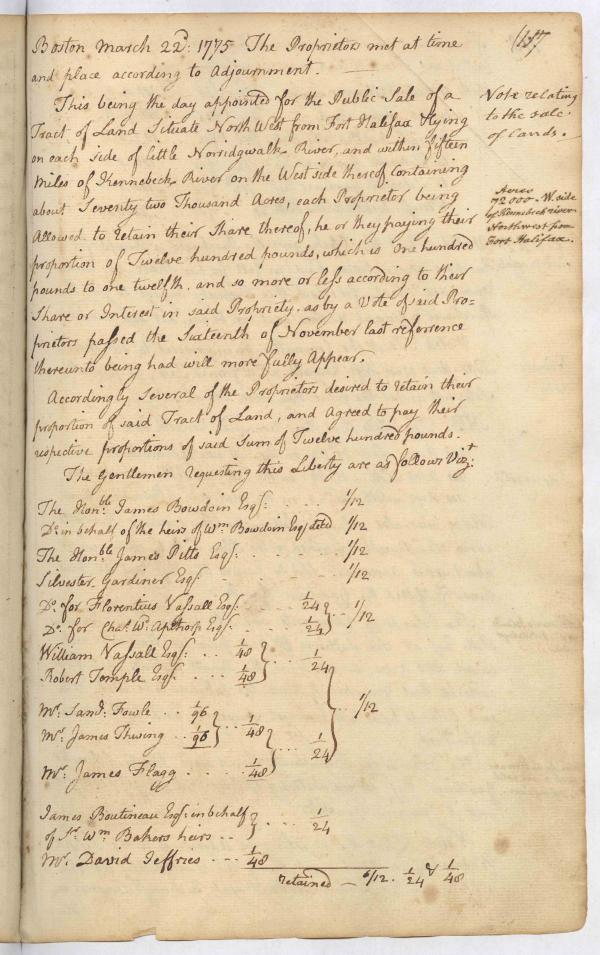 (157
Boston March 22d: 1775 The Proprietors met at time
and place according to Adjournment.
This being the day appointed for the Public Sale of a
Tract of Land Situate North West from Fort Halifax Lying
on each side of little Norridgwalk River, and within fifteen
Miles of Kennebeck River on the West side thereof Containing
about Seventy two Thousand Acres, each Proprietor being
Allowed to retain their Share thereof, he or they paying their
proportion of Twelve hundred pounds, which is One hundred
pounds to one twelfth, and so more or less according to their
Share or Interest in said Propriety, as by a Vote of said Pro=
prietors passed the Sixteenth of November last refference
thereunto being had will more fully Appear.
Vote relating
to the sale
of lands.
Acres
72000. W. side
of Kennebeck river
Northwest from
Fort Halifax.
Accordingly Several of the Proprietors desired to retain their
proportion of said Tract of Land, and Agreed to pay their
respective proportions of said Sum of Twelve hundred pounds.
The Gentlemen requesting this Liberty are as follows Vizt:
The Honble James Bowdoin Esqr: 1/12
Do in behalf of the heirs of Wm Bowdoin Esqr decd 1/12
The Honble James Pitts Esqr: 1/12
Silvester Gardiner Esqr: 1/12
Do: for Florentius Vassall Esqr: 1/24 } 1/12
Do: for Chas. Wd. Apthorp Esqr: 1/24
William Vassall Esqr: 1/48 } 1/24
Robert Temple Esqr: 1/48
} 1/12
Mr: Sand: Fowle 1/96 } 1/48
Mr: James Thwing 1/96
} 1/24
Mr: James Flagg 1/48
James Boutineau Esqr: in behalf } 1/24
of Sr. Wm Bakers heirs
Mr: David Jeffries 1/48
retained 6/12. 1/24 & 1/48